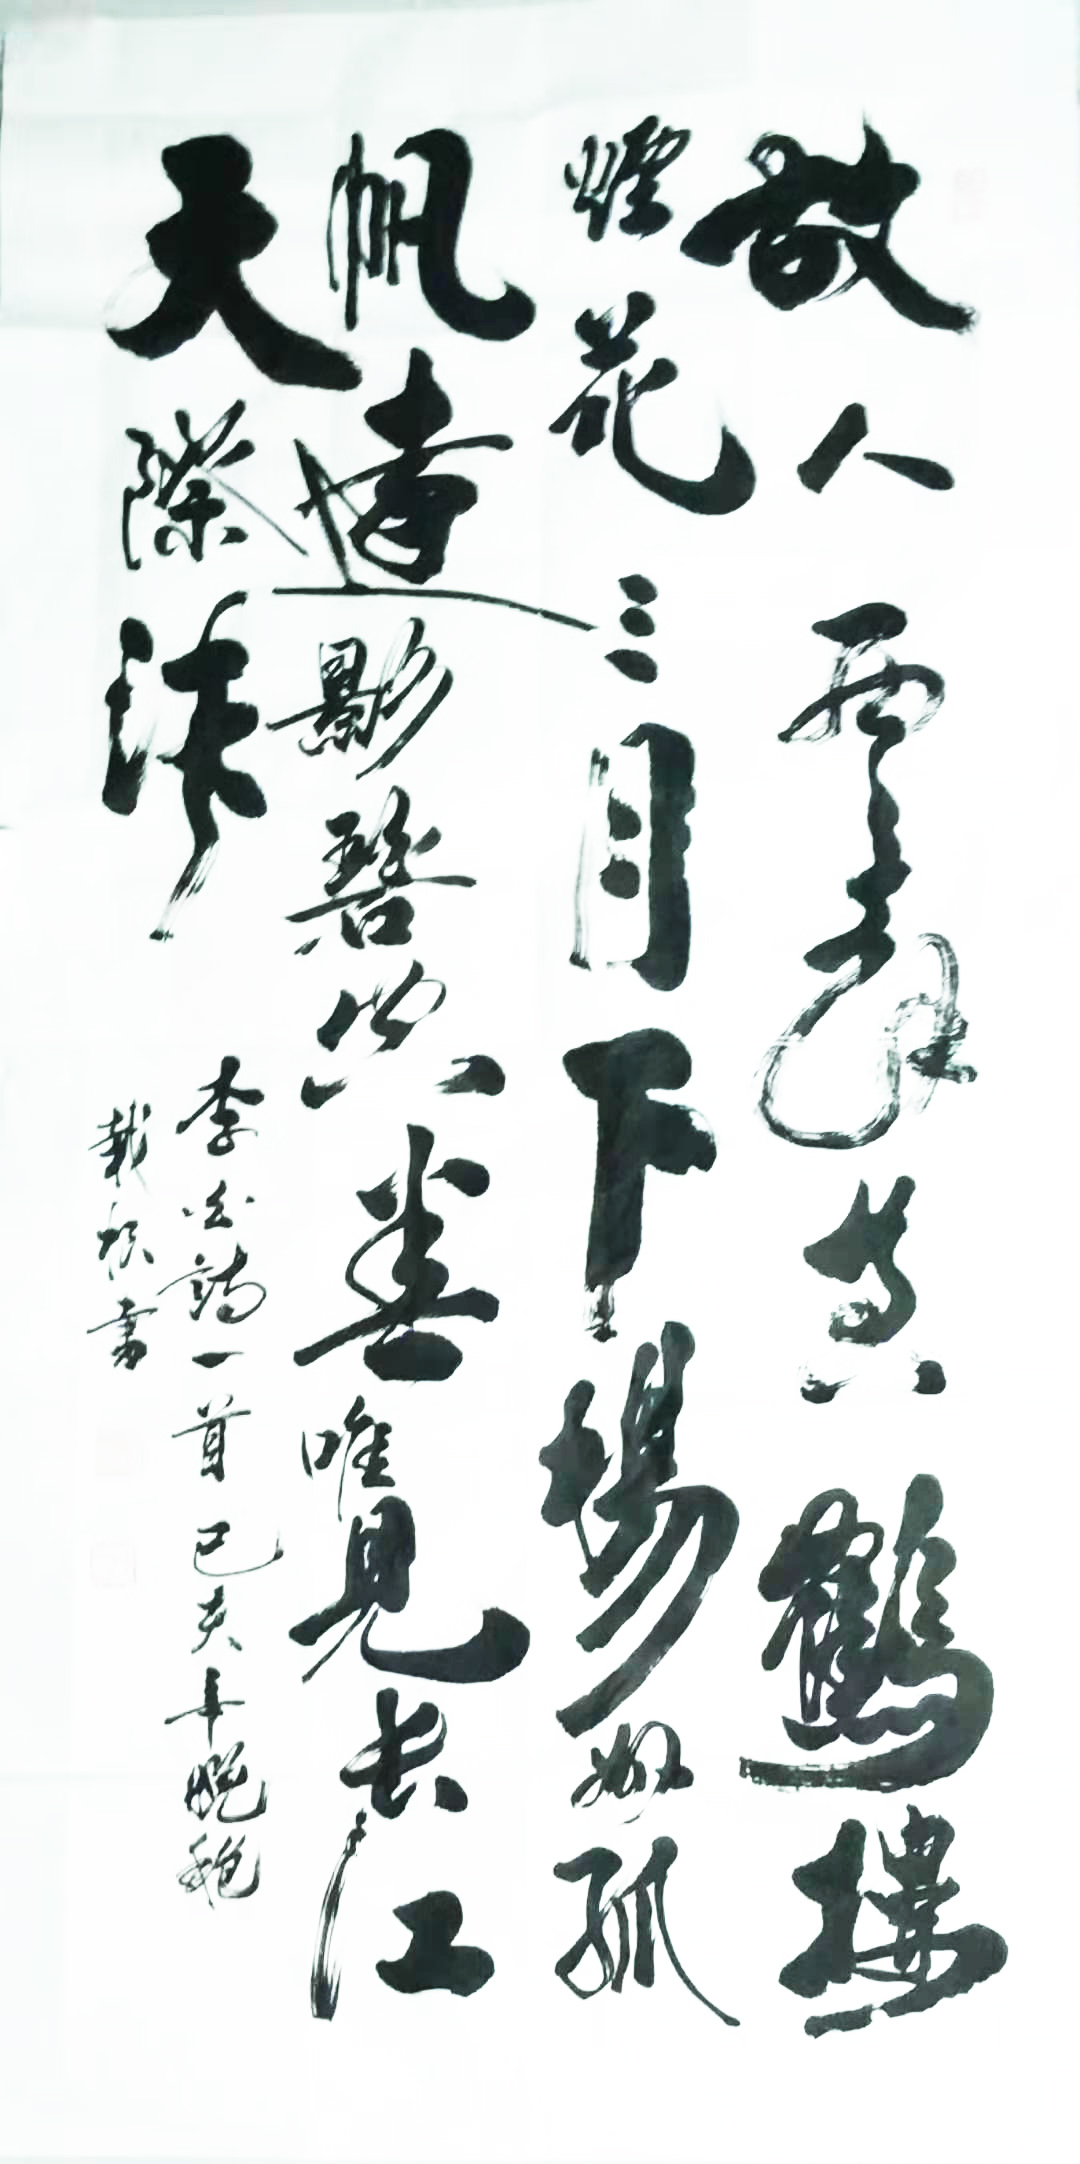 故人西辭黄鶴樓
煙花三月下揚州孤
帆遠影碧空盡唯見长江
天際流
李白詩一首己亥年晚穐
書